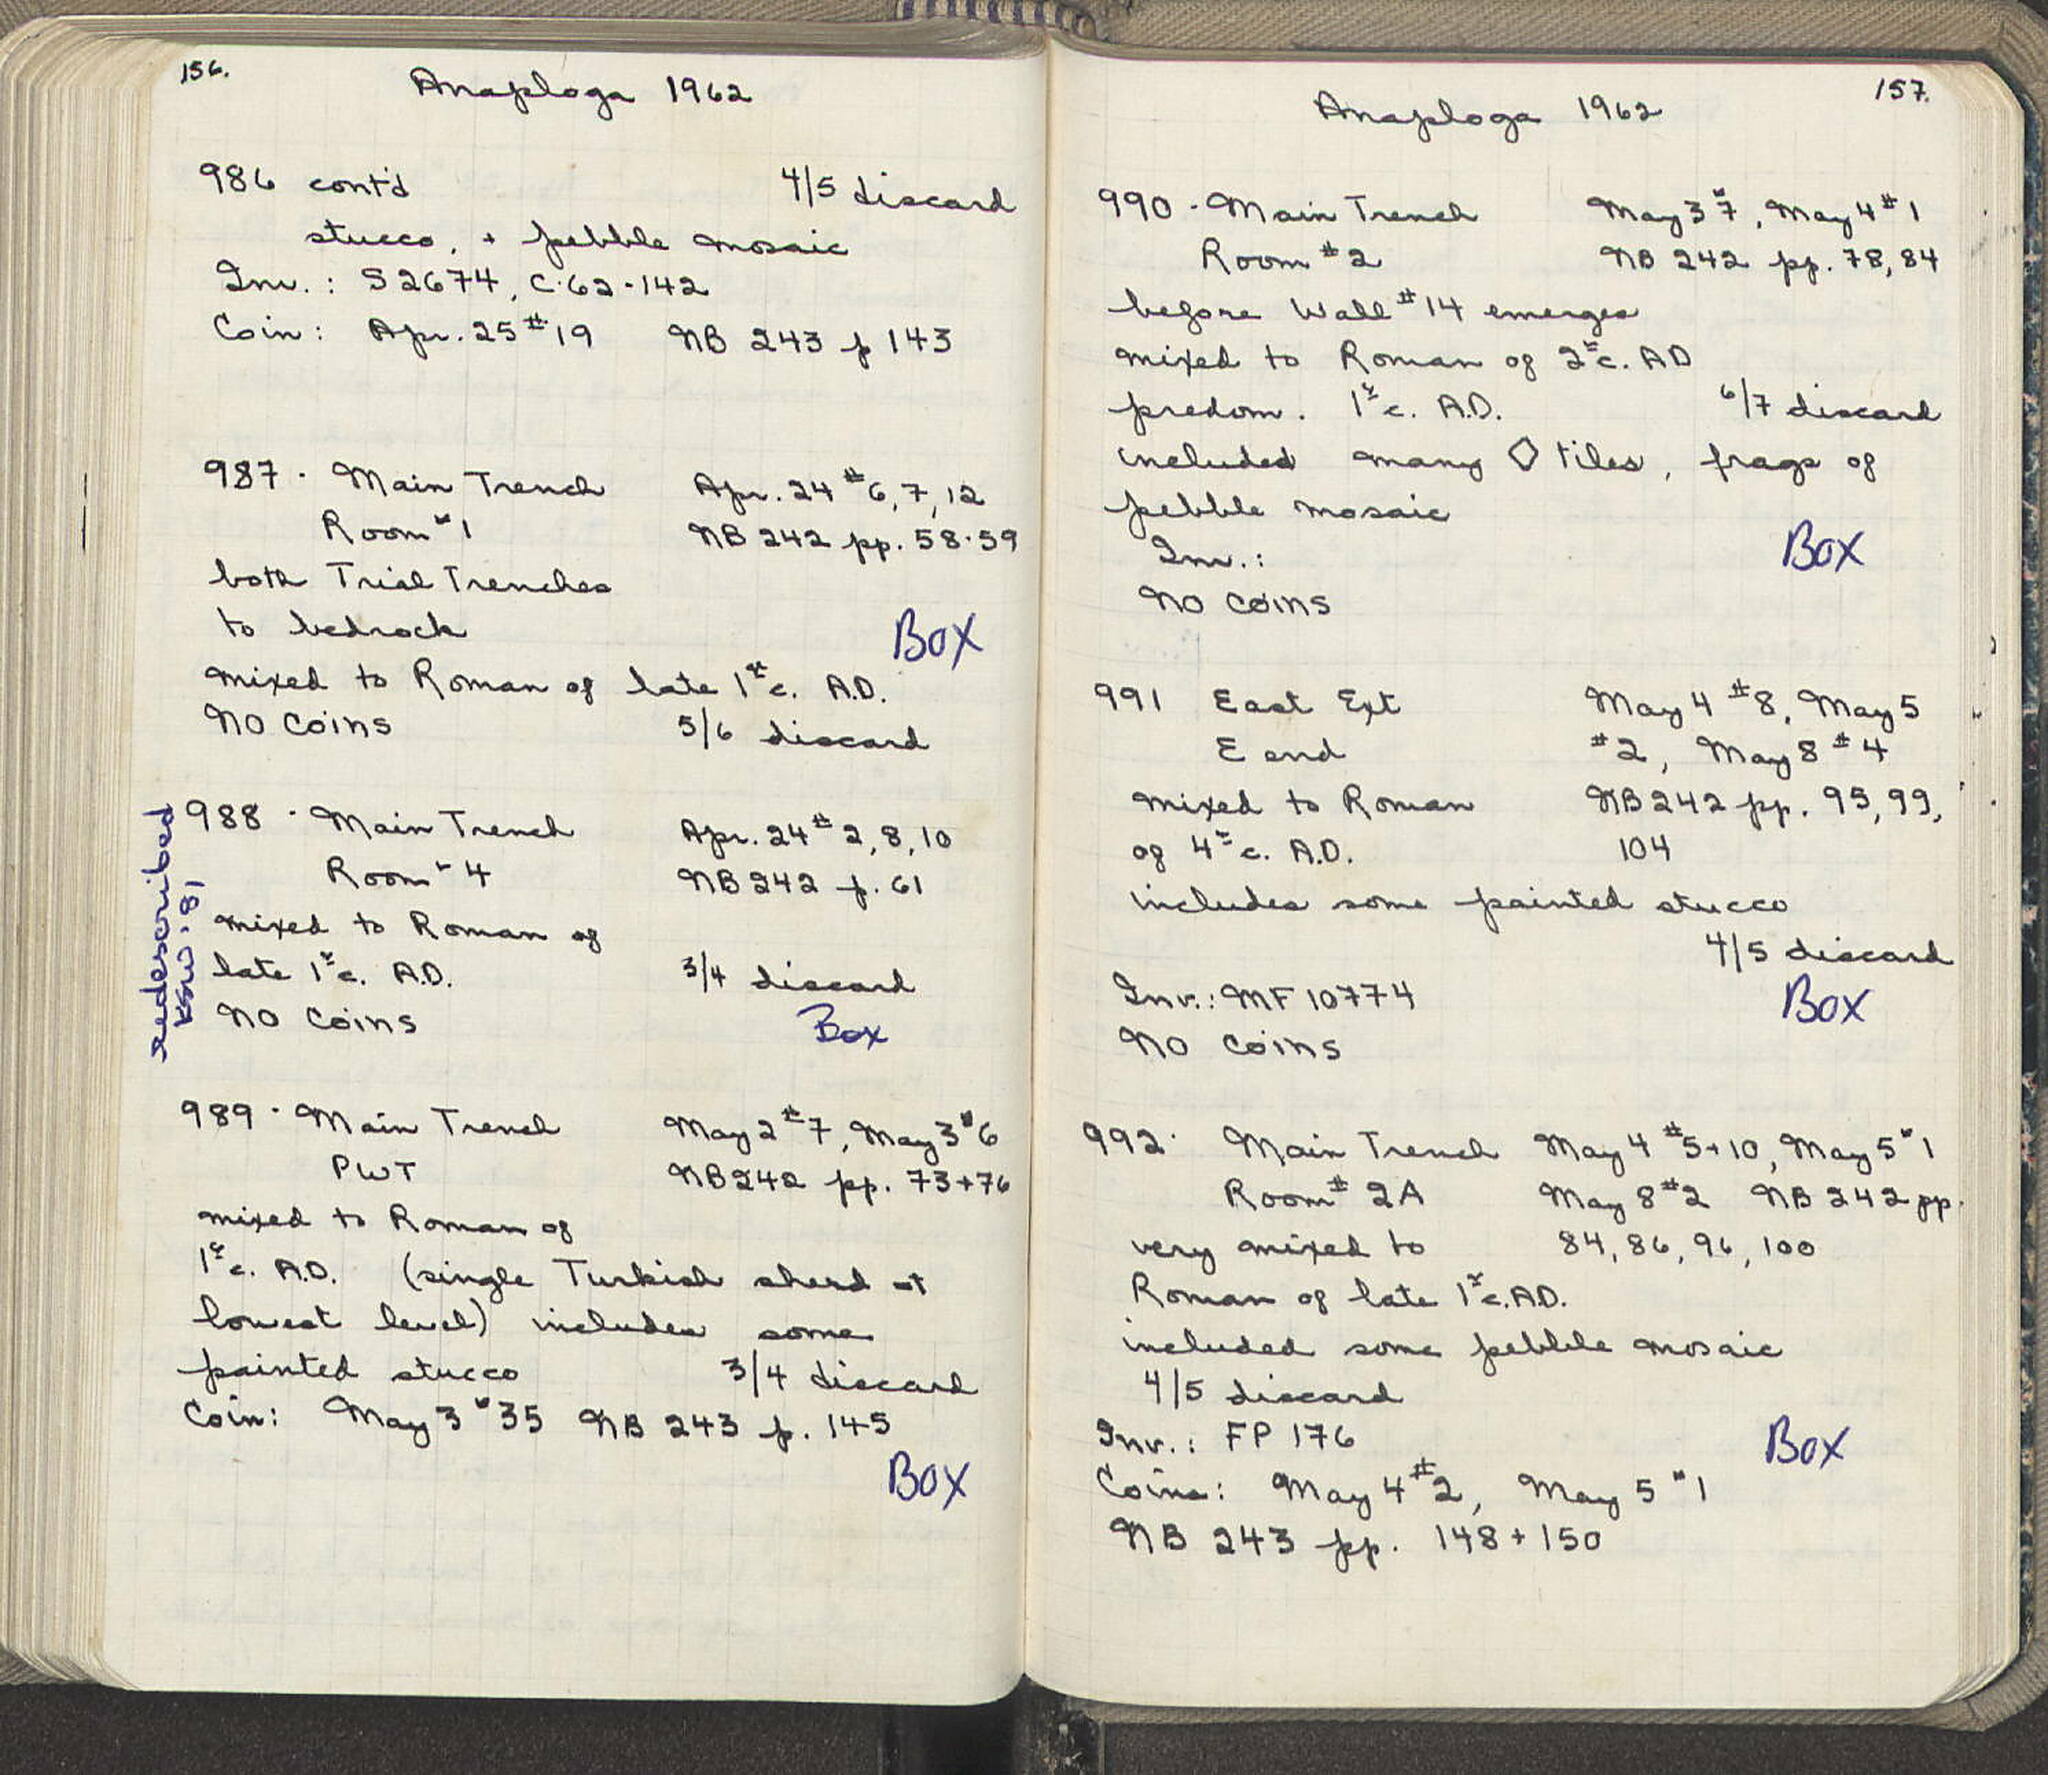 156.
Anaploga 1962
986 cont'd 4/5 discard
stucco, + pebble mosaic
Inv.: S2674, C·62·142
Coin: Apr. 25 #19 NB 243 p 143
987 · Main Trench Apr. 24 #6, 7, 12
Room #1 NB 242 pp. 58·59
both Trial Trenches
to bedrock
Box
mixed to Roman of late 1st c. A.D.
No Coins 5/6 discard
988 · Main Trench Apr. 24 #2, 8, 10
Room #4 NB 242 p. 61
mixed to Roman of
late 1st c. A.D. 3/4 discard
No Coins Box
redescribed
KSW. 81
989 · Main Trench May 2 #7, May 3 #6
PWT NB 242 pp. 73+76
mixed to Roman of
1st c. A.D. (single Turkish sherd at
lowest level) includes some
painted stucco 3/4 discard
Coin: May 3 #35 NB 243 p. 145
Box
157.
Anaploga 1962
990 · Main Trench May 3 #7, May 4 #1
Room #2 NB 242 pp. 78, 84
before Wall #14 emerges
mixed to Roman of 2nd c. AD
predom. 1st c. A.D. 6/7 discard
included many ◇ tiles, frags of
pebble mosaic
Inv.: Box
No Coins
991 East Ext May 4 #8, May 5
E end #2, May 8 #4
mixed to Roman NB 242 pp. 95, 99,
of 4th c. A.D. 104
includes some painted stucco
4/5 discard
Inv.: MF 10774 Box
No Coins
992 · Main Trench May 4 #5+10, May 5 #1
Room #2A May 8 #2 NB 242 pp.
very mixed to 84, 86, 96, 100
Roman of late 1st c. A.D.
included some pebble mosaic
4/5 discard
Inv.: FP 176 Box
Coins: May 4 #2, May 5 #1
NB 243 pp. 148 + 150